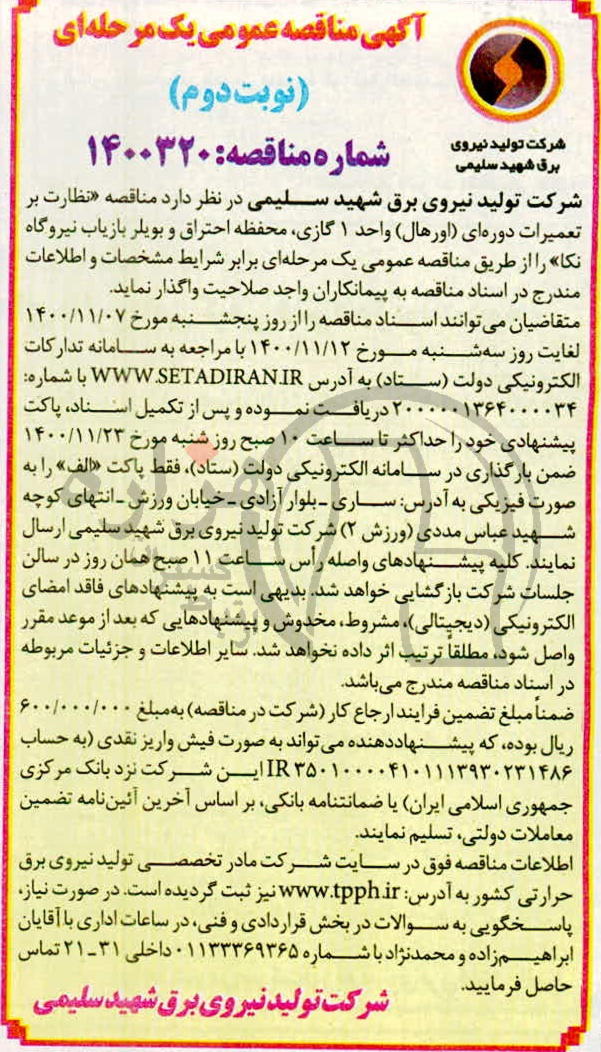 آگهی مناقصه عمومی یک مرحله‌ای
(نوبت دوم)
شماره مناقصه: ۱۴۰۰۳۲۰
شرکت تولید نیروی
برق شهید سلیمی
شرکت تولید نیروی برق شهید سلیمی در نظر دارد مناقصه «نظارت بر
تعمیرات دوره‌ای (اورهال) واحد ۱ گازی، محفظه احتراق و بویلر بازیاب نیروگاه
نکا» را از طریق مناقصه عمومی یک مرحله‌ای برابر شرایط مشخصات و اطلاعات
مندرج در اسناد مناقصه به پیمانکاران واجد صلاحیت واگذار نماید.
متقاضیان می‌توانند اسناد مناقصه را از روز پنجشنبه مورخ ۱۴۰۰/۱۱/۰۷
لغایت روز سه‌شنبه مورخ ۱۴۰۰/۱۱/۱۲ با مراجعه به سامانه تدارکات
الکترونیکی دولت (ستاد) به آدرس WWW.SETADIRAN.IR با شماره:
۲۰۰۰۰۰۱۳۶۴۰۰۰۰۳۴ دریافت نموده و پس از تکمیل اسناد، پاکت
پیشنهادی خود را حداکثر تا ساعت ۱۰ صبح روز شنبه مورخ ۱۴۰۰/۱۱/۲۳
ضمن بارگذاری در سامانه الکترونیکی دولت (ستاد)، فقط پاکت «الف» را به
صورت فیزیکی به آدرس: ساری ـ بلوار آزادی ـ خیابان ورزش ـ انتهای کوچه
شهید عباس مددی (ورزش ۲) شرکت تولید نیروی برق شهید سلیمی ارسال
نمایند. کلیه پیشنهادهای واصله رأس ساعت ۱۱ صبح همان روز در سالن
جلسات شرکت بازگشایی خواهد شد. بدیهی است به پیشنهادهای فاقد امضای
الکترونیکی (دیجیتالی)، مشروط، مخدوش و پیشنهادهایی که بعد از موعد مقرر
واصل شود، مطلقاً ترتیب اثر داده نخواهد شد. سایر اطلاعات و جزئیات مربوطه
در اسناد مناقصه مندرج می‌باشد.
ضمناً مبلغ تضمین فرایند ارجاع کار (شرکت در مناقصه) به‌مبلغ ۶۰۰/۰۰۰/۰۰۰
ریال بوده، که پیشنهاددهنده می‌تواند به صورت فیش واریز نقدی (به حساب
IR ۳۵۰۱۰۰۰۰۴۱۰۱۱۱۳۹۳۰۲۳۱۴۸۶ این شرکت نزد بانک مرکزی
جمهوری اسلامی ایران) یا ضمانتنامه بانکی، بر اساس آخرین آئین‌نامه تضمین
معاملات دولتی، تسلیم نمایند.
اطلاعات مناقصه فوق در سایت شرکت مادر تخصصی تولید نیروی برق
حرارتی کشور به آدرس: www.tpph.ir نیز ثبت گردیده است. در صورت نیاز،
پاسخگویی به سوالات در بخش قراردادی و فنی، در ساعات اداری با آقایان
ابراهیم‌زاده و محمدنژاد با شماره ۰۱۱۳۳۳۶۹۳۶۵ داخلی ۳۱ ـ ۲۱ تماس
حاصل فرمایید.
شرکت تولید نیروی برق شهید سلیمی